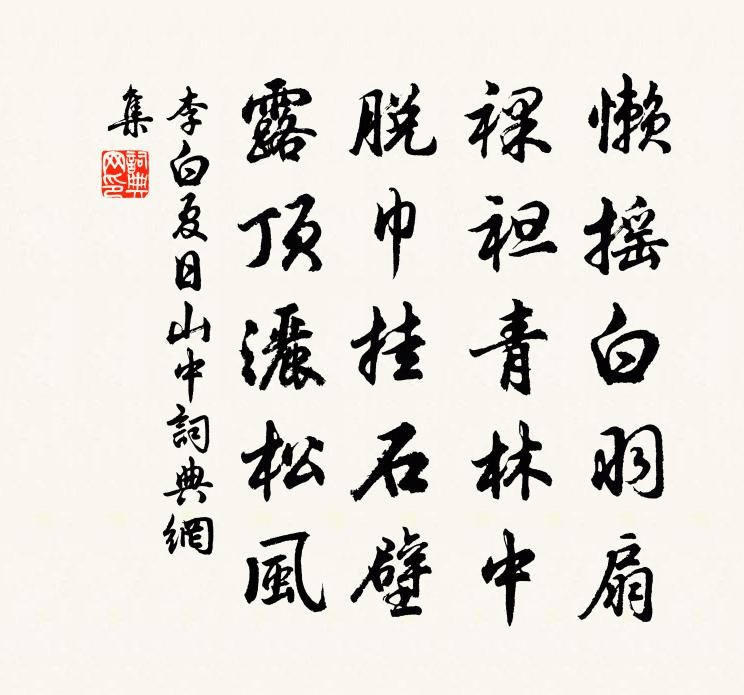 懶搖白羽扇
裸袒青林中
脫巾挂石壁
露頂灑松風
李白夏日山中詞典網
集
詞典
网印